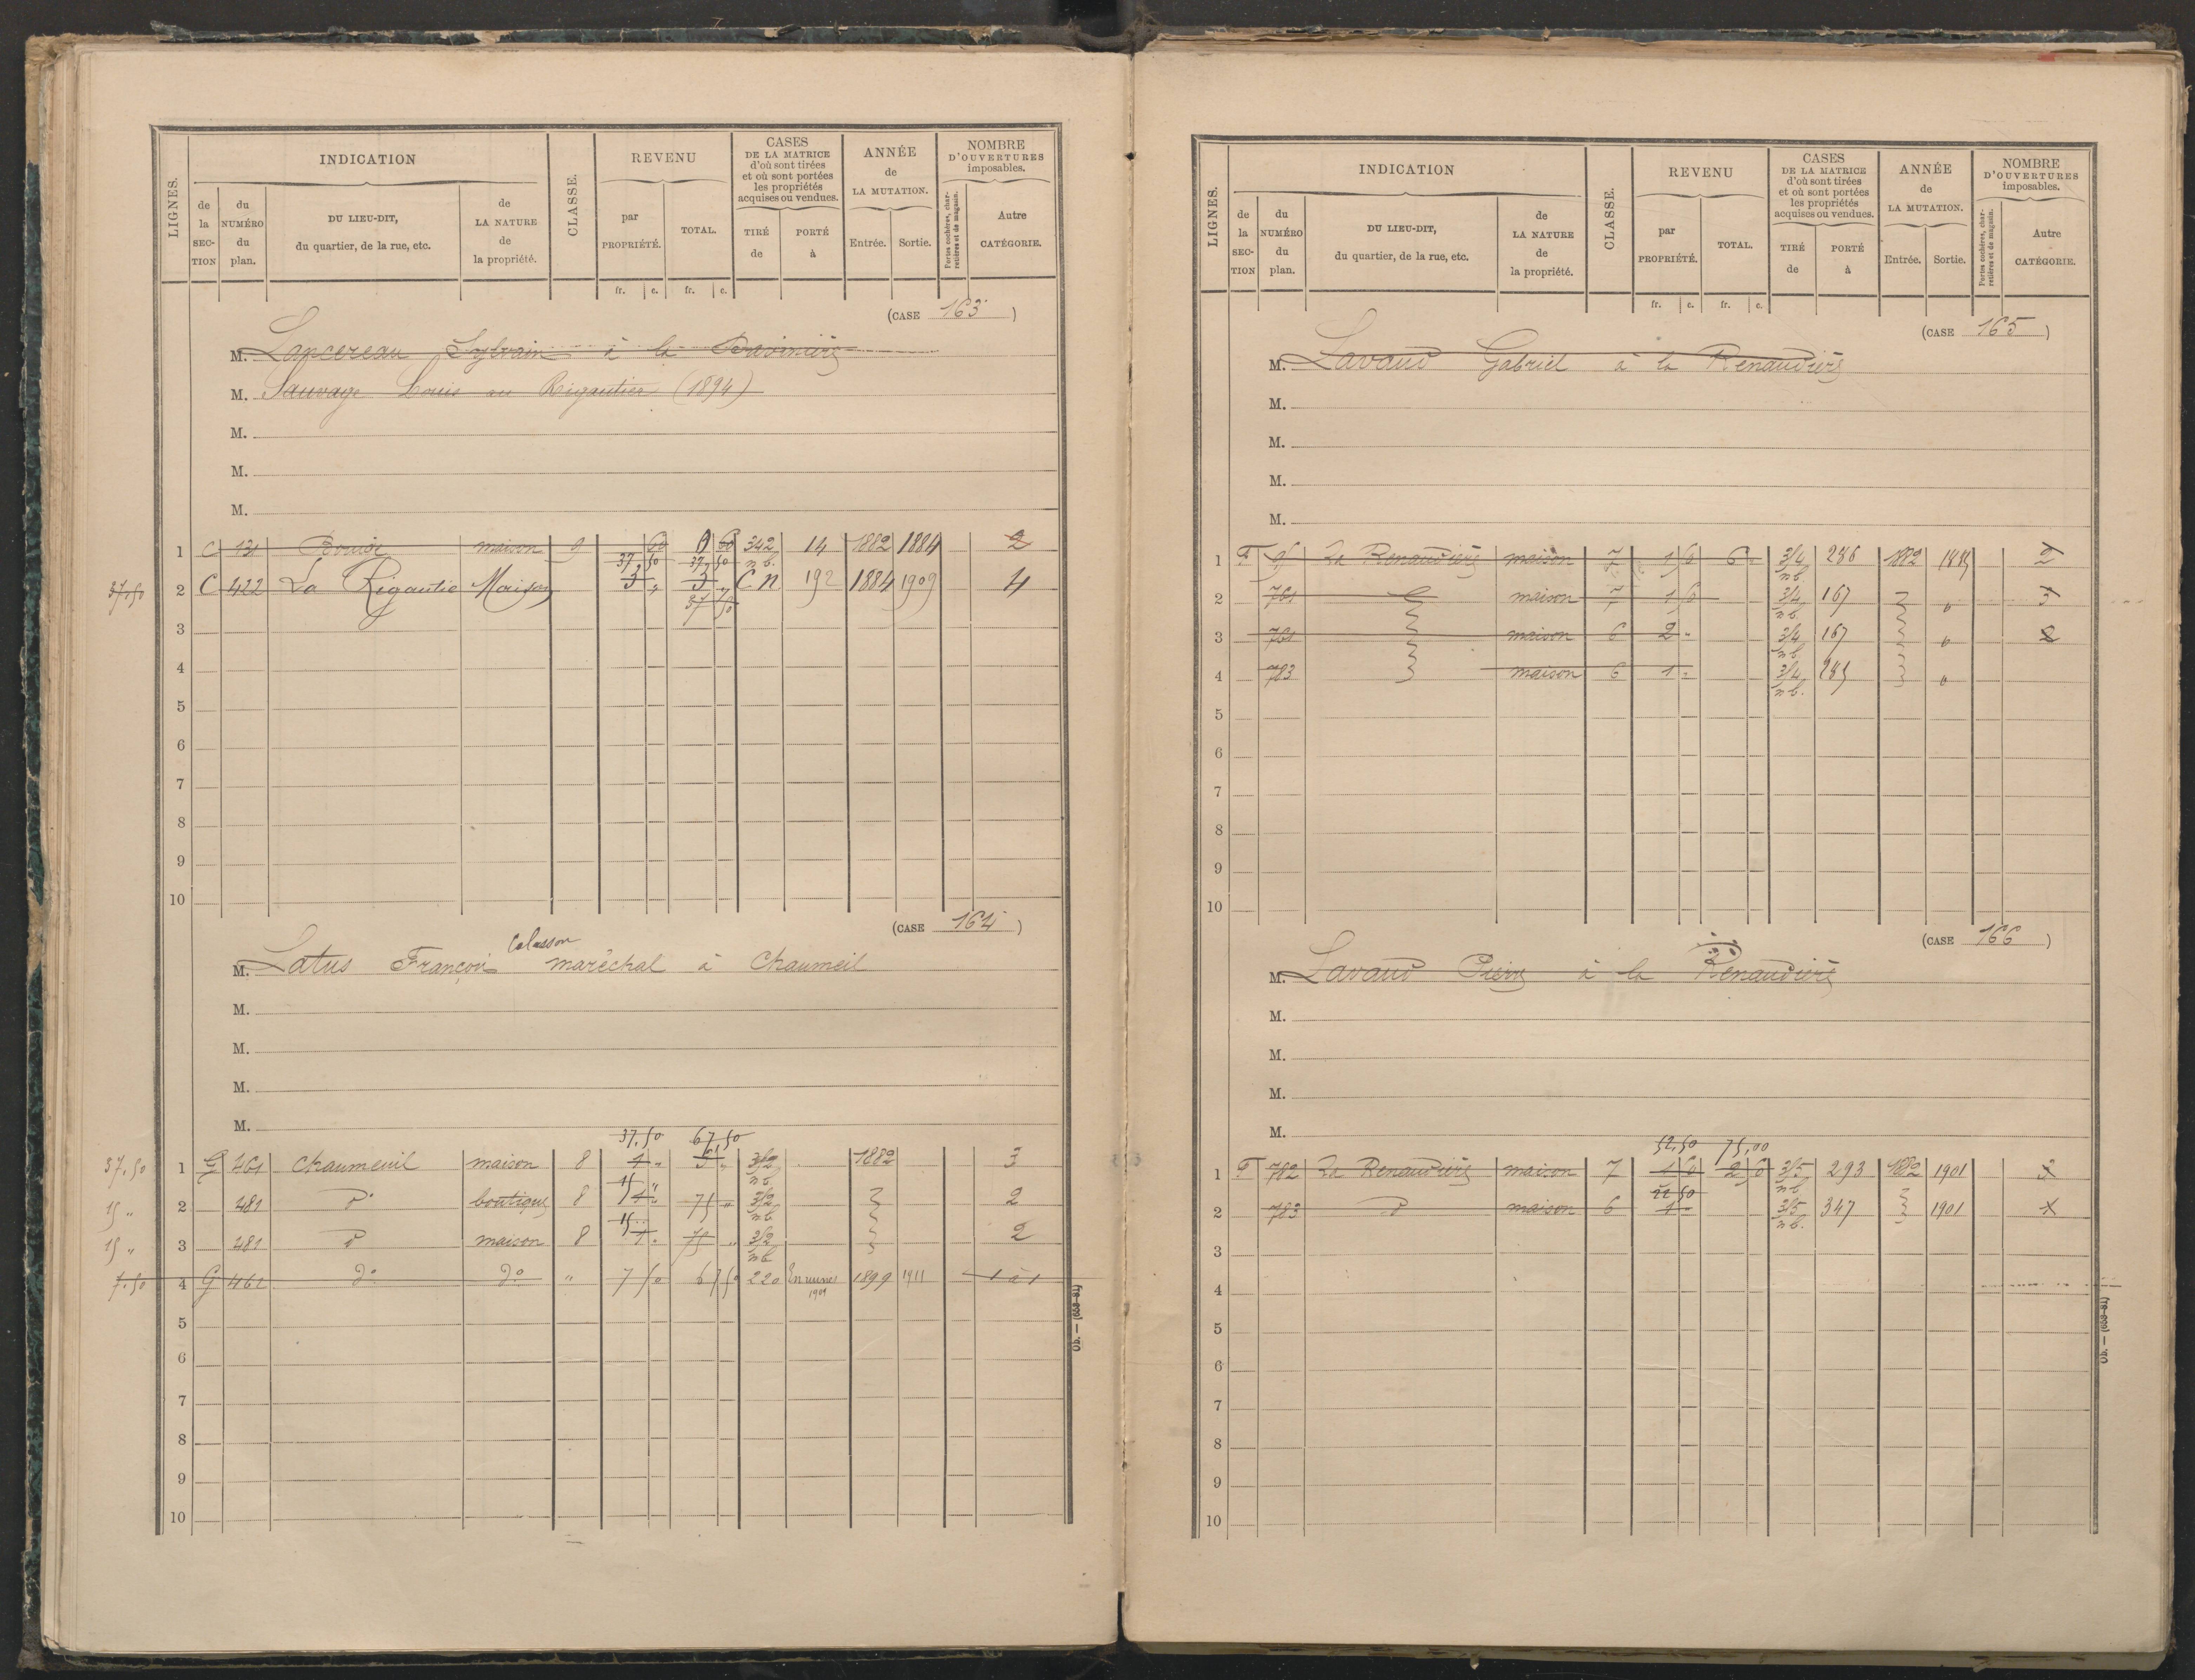 LIGNES.
INDICATION
de la SECTION
du NUMÉRO du plan.
DU LIEU-DIT, du quartier, de la rue, etc.
de LA NATURE de la propriété.
CLASSE.
REVENU
par PROPRIÉTÉ.
TOTAL.
fr. c. fr. c.
CASES DE LA MATRICE d'où sont tirées et où sont portées les propriétés acquises ou vendues.
TIRÉ de
PORTÉ à
ANNÉE de LA MUTATION.
Entrée. Sortie.
NOMBRE D'OUVERTURES imposables.
Portes cochères, charretières et de magasin.
Autre CATÉGORIE.
(CASE 163)
M. Lancereau Sylvain à la
M. Sauvage Louis au Rigautier (1894)
M.
M.
M.
1 C 131 maison 9 60 60 342 nb. 14 1882 1884 2
37,50 37,50
37,50 2 C 422 La Rigautie Maison 3 „ 3 „ C N 192 1884 1909 4
37 50
3
4
5
6
7
8
9
10
(CASE 164)
Calasson
M. Latus François maréchal à Chaumeil
M.
M.
M.
M.
37,50 67,50
37,50 1 G 461 Chaumeuil maison 8 1 „ 3 „ 3/2 nb 1882 3
15 „
15 „ 2 481 do boutique 8 1 „ 75 „ 3/2 nb 2
15 „
15 „ 3 481 do maison 8 1 „ 75 „ 3/2 nb 2
7.50 4 G 462 do do „ 7 50 67 50 220 En ruines 1901 1899 1911 1 à 1
5
6
7
8
9
10
LIGNES.
INDICATION
de la SECTION
du NUMÉRO du plan.
DU LIEU-DIT, du quartier, de la rue, etc.
de LA NATURE de la propriété.
CLASSE.
REVENU
par PROPRIÉTÉ.
TOTAL.
fr. c. fr. c.
CASES DE LA MATRICE d'où sont tirées et où sont portées les propriétés acquises ou vendues.
TIRÉ de
PORTÉ à
ANNÉE de LA MUTATION.
Entrée. Sortie.
NOMBRE D'OUVERTURES imposables.
Portes cochères, charretières et de magasin.
Autre CATÉGORIE.
(CASE 165)
M. Lavaud Gabriel à la Renaudière
M.
M.
M.
M.
1 La Renaudière maison 7 1 6 3/4 nb 286 1882 2
2 761 maison 7 1 3/4 nb. 167 3
3 761 maison 6 2 „ 3/4 nb 167 2
4 783 maison 6 1 „ 3/4 nb. 285
5
6
7
8
9
10
(CASE 166)
M. Lavaud Pierre à la Renaudière
M.
M.
M.
M.
52,50 75,00
1 782 La Renaudière maison 7 1 2 3/5 nb 293 1882 1901
22 50
2 783 do maison 6 1 „ 3/5 nb. 347 1901
3
4
5
6
7
8
9
10